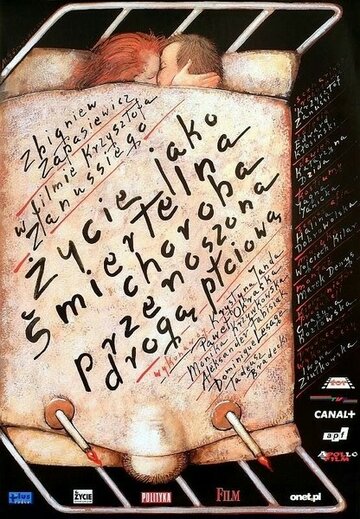 Zbigniew
Zapasiewicz
w filmie Krzysztofa
Zanussiego
Życie jako
śmiertelna
choroba
przenoszona
drogą płciową
wykonawcy Krystyna Janda
Paweł Okraska
Monika Krzywkowska
Aleksander Fabisiak
Dominique Lesage
Tadeusz
Bradecki
Krzysztof
Edward
Halina
Dobrowolska
Wojciech Kilar
Marek Denys
Kozłowska
Ziutkowska
CANAL+
apf
APOLLO
FILM
plus
ŻYCIE
POLITYKA
FILM
onet.pl